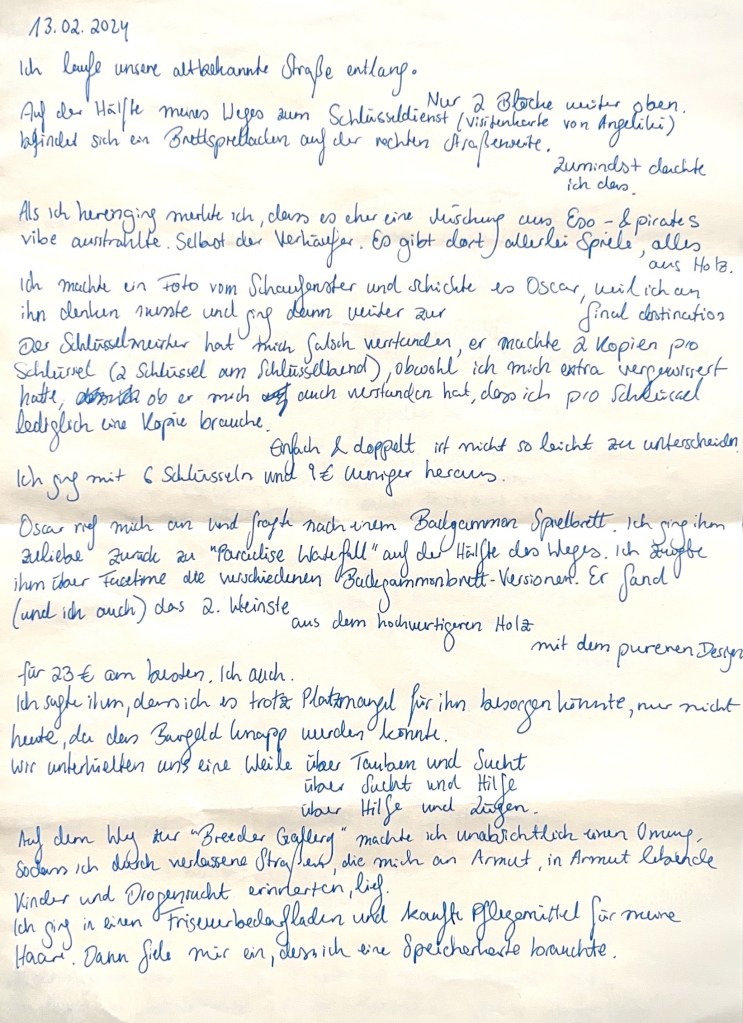 13.02.2024
Ich laufe unsere altbekannte Straße entlang.
Nur 2 Blöcke weiter oben.
Auf der Hälfte meines Weges zum Schlüsseldienst (Visitenkarte von Angeliki)
befindet sich ein Brettspielladen auf der rechten Straßenseite.
Zumindest dachte
ich das.
Als ich hereinging merkte ich, dass es eher eine Mischung aus Eso- & pirates
vibe ausstrahlte. Selbst der Verkäufer. Es gibt dort allerlei Spiele, alles
aus Holz.
Ich machte ein Foto vom Schaufenster und schickte es Oscar, weil ich an
ihn denken musste und ging dann weiter zur final destination
Der Schlüsselmeister hat mich falsch verstanden, er machte 2 Kopien pro
Schlüssel (2 Schlüssel am Schlüsselbund), obwohl ich mich extra vergewissert
hatte, ob er mich auch verstanden hat, dass ich pro Schlüssel
lediglich eine Kopie brauche.
Einfach & doppelt ist nicht so leicht zu unterscheiden.
Ich ging mit 6 Schlüsseln und 9€ weniger heraus.
Oscar rief mich an und fragte nach einem Backgammon Spielbrett. Ich ging ihm
zuliebe zurück zu "Paradise Waterfall" auf der Hälfte des Weges. Ich zeigte
ihm über Facetime die verschiedenen Backgammonbrett-Versionen. Er fand
(und ich auch) das 2. kleinste
aus dem hochwertigeren Holz
mit dem pureren Design
für 23€ am besten. Ich auch.
Ich sagte ihm, dass ich es trotz Platzmangel für ihn besorgen könnte, nur nicht
heute, da das Bargeld knapp werden könnte.
Wir unterhielten uns eine Weile über Tauben und Sucht
über Sucht und Hilfe
über Hilfe und Lügen.
Auf dem Weg zur "Breeder Gallery" machte ich unabsichtlich einen Umweg,
sodass ich durch verlassene Straßen, die mich an Armut, in Armut lebende
Kinder und Drogensucht erinnerten, lief.
Ich ging in einen Friseurbedarfladen und kaufte Pflegemittel für meine
Haare. Dann fiele mir ein, dass ich eine Speicherkarte brauchte.